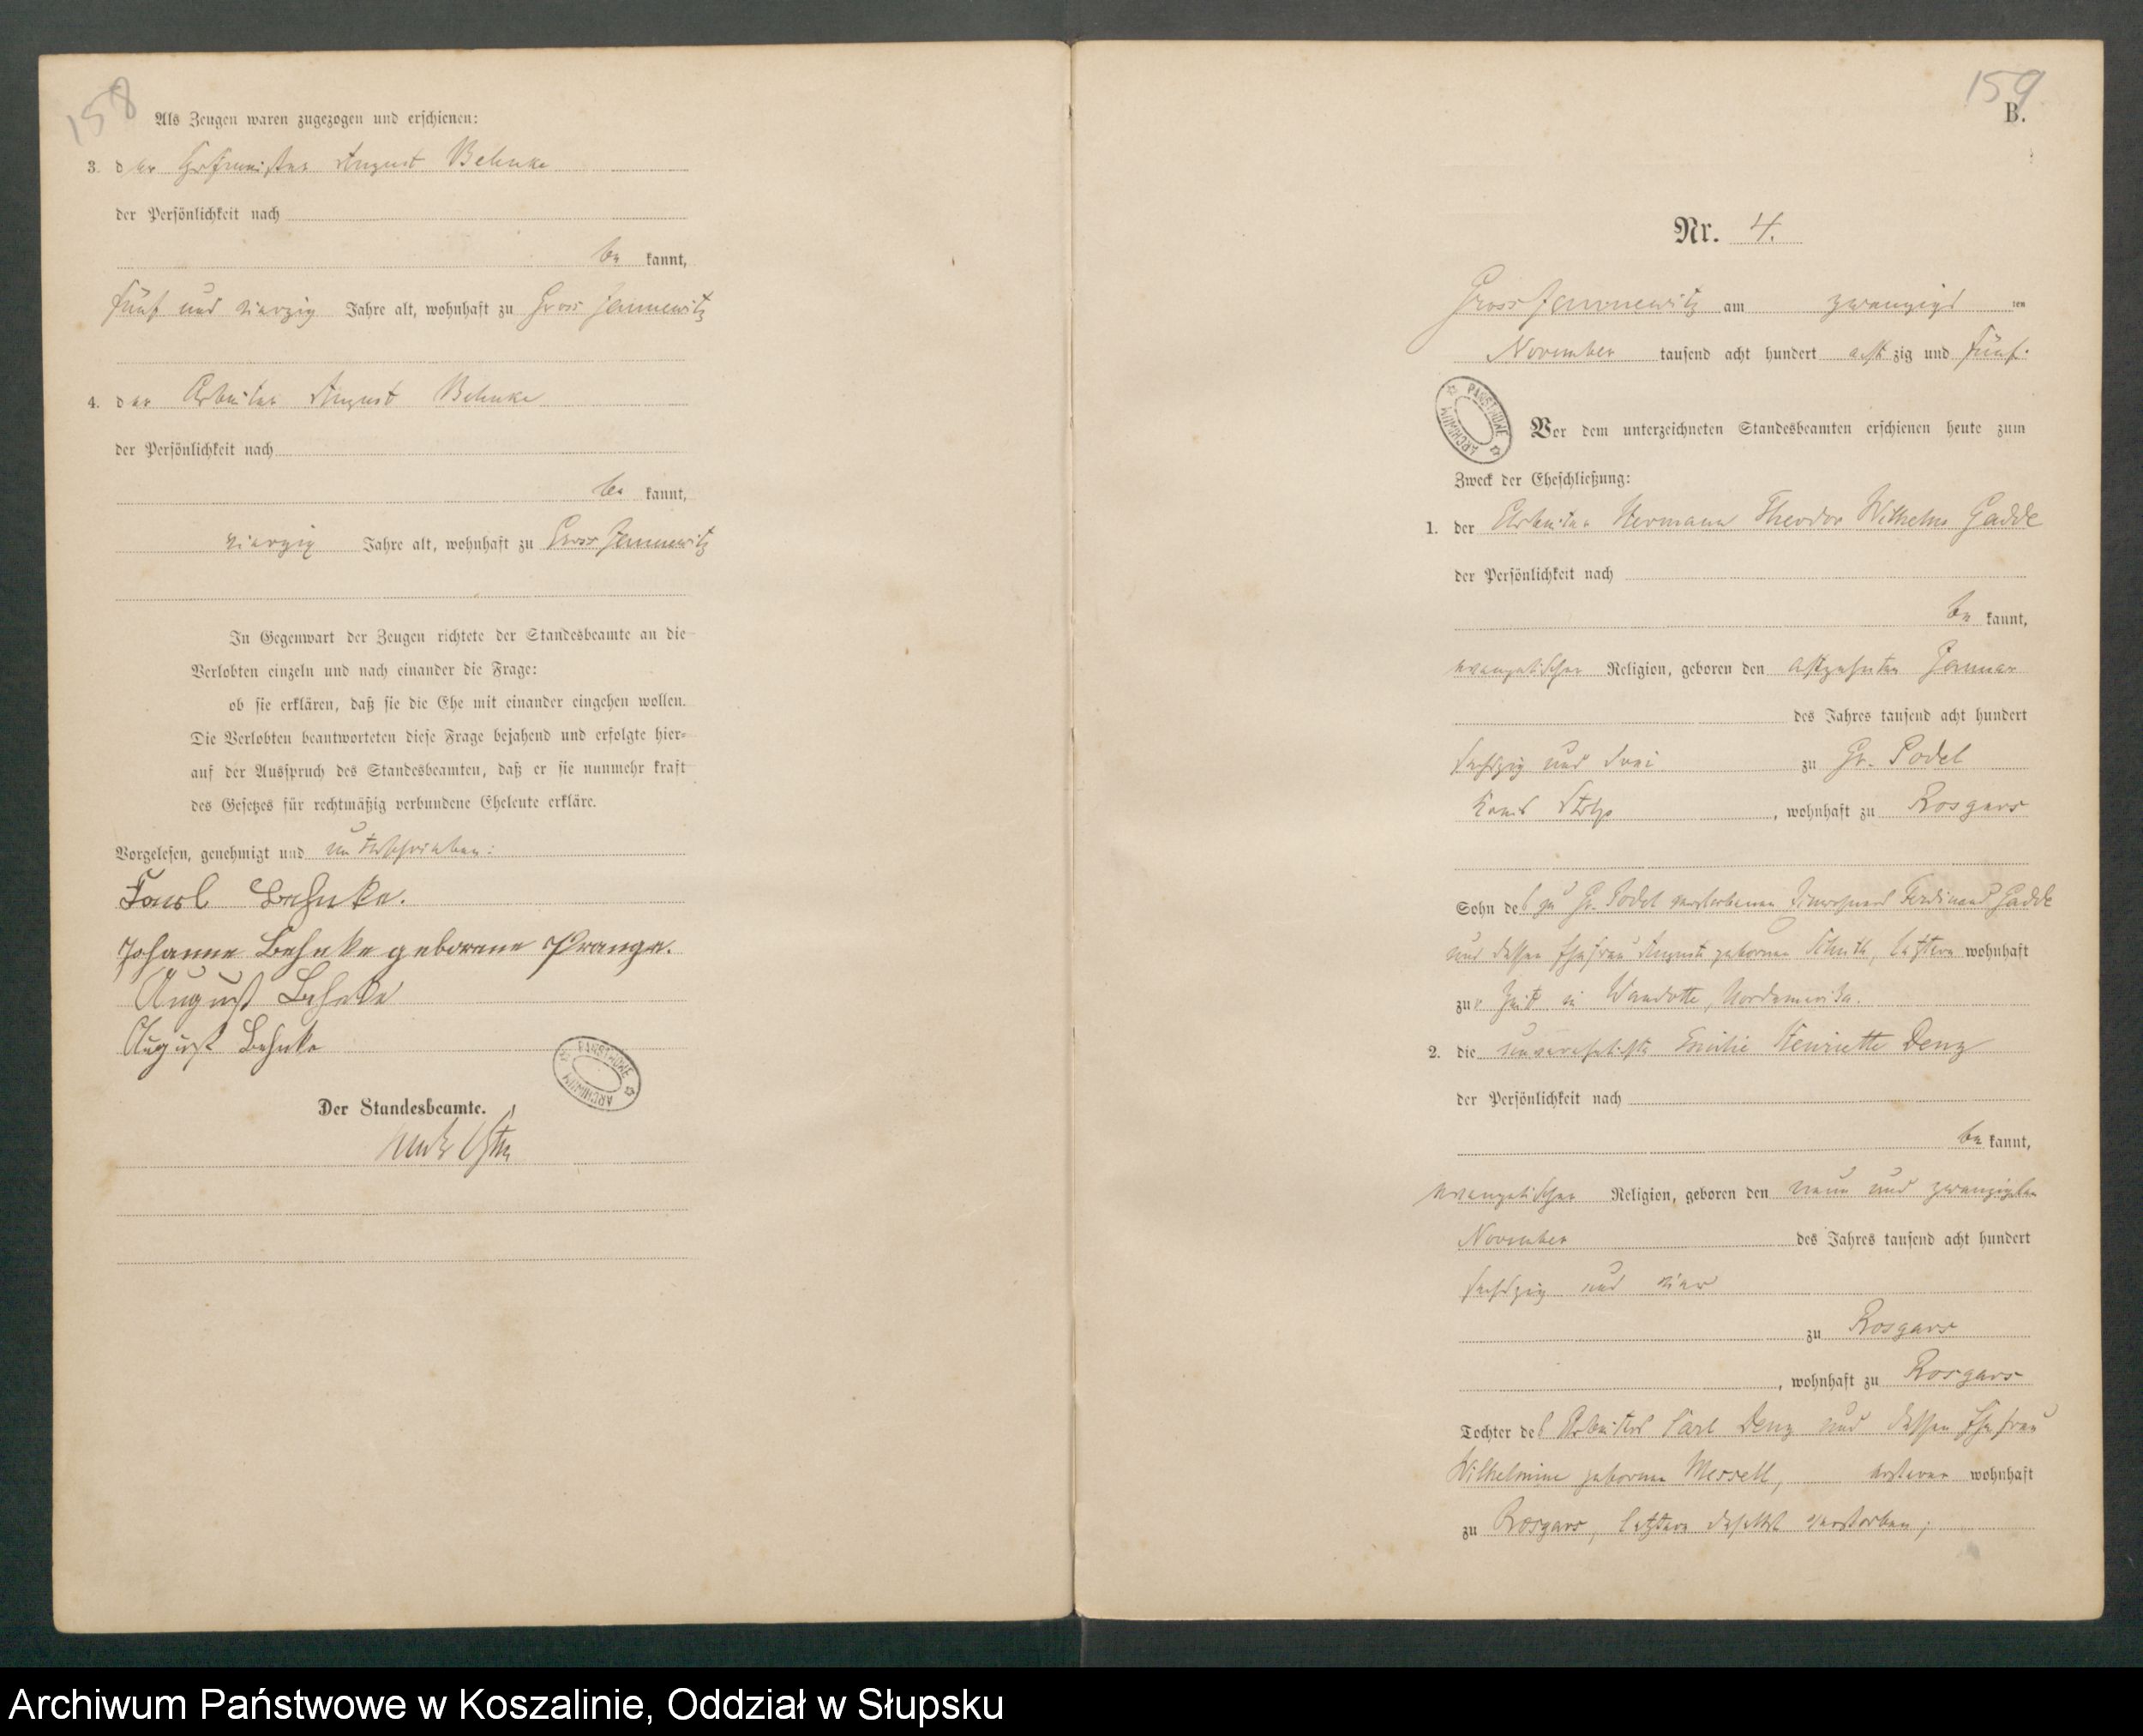 158
Als Zeugen waren zugezogen und erschienen:
3. der August Behnke
der Persönlichkeit nach
be kannt,
fünf und vierzig Jahre alt, wohnhaft zu Gross Jannewitz
4. der Arbeiter August Behnke
der Persönlichkeit nach
be kannt,
vierzig Jahre alt, wohnhaft zu Gross Jannewitz
In Gegenwart der Zeugen richtete der Standesbeamte an die
Verlobten einzeln und nach einander die Frage:
ob sie erklären, daß sie die Ehe mit einander eingehen wollen.
Die Verlobten beantworteten diese Frage bejahend und erfolgte hier-
auf der Ausspruch des Standesbeamten, daß er sie nunmehr kraft
des Gesetzes für rechtmäßig verbundene Eheleute erkläre.
Vorgelesen, genehmigt und unterschrieben:
Karl Behnke.
Johanne Behnke geborene Prange.
August Behnke
August Behnke
ARCHIWUM PAŃSTWOWE
Der Standesbeamte.
159
B.
Nr. 4.
Gross Jannewitz am zwanzigst ten
November tausend acht hundert acht zig und fünf.
ARCHIWUM PAŃSTWOWE
Vor dem unterzeichneten Standesbeamten erschienen heute zum
Zweck der Eheschließung:
1. der Arbeiter Hermann Theodor Wilhelm Gadde
der Persönlichkeit nach
be kannt,
evangelischer Religion, geboren den achtzehnten Januar
des Jahres tausend acht hundert
sechszig und drei zu Gr. Podel
Kreis Stolp, wohnhaft zu Rosgars
Sohn des zu Gr. Podel verstorbenen Einwohners Ferdinand Gadde
und dessen Ehefrau geborene letztere wohnhaft
zur Zeit in Wandotte, Nordamerika.
2. die unverehelichte Emilie Henriette Denz
der Persönlichkeit nach
be kannt,
evangelischer Religion, geboren den neun und zwanzigsten
November des Jahres tausend acht hundert
sechszig und vier
zu Rosgars
, wohnhaft zu Rosgars
Tochter des Arbeiters Carl Denz und dessen Ehefrau
Wilhelmine geborene ersterer wohnhaft
zu Rosgars, letztere daselbst verstorben;
Archiwum Państwowe w Koszalinie, Oddział w Słupsku